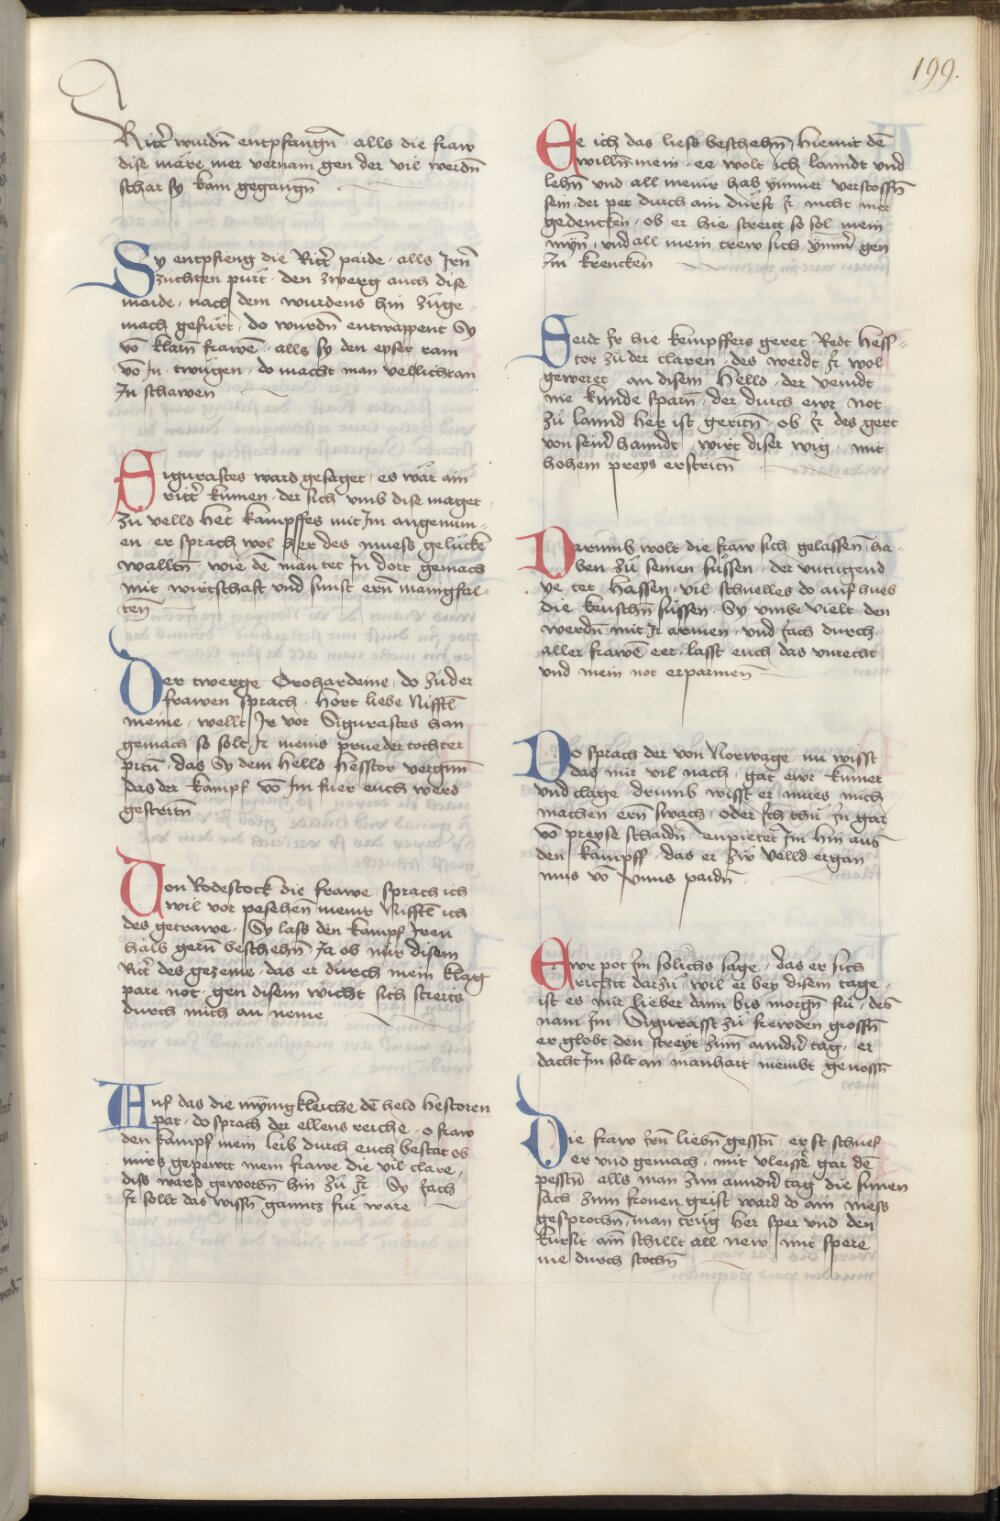 199.
Ritt' wurdn̄ entpfangn̄ · alls die fraw
dise märe mer vernam gen der vil werdn̄
schar sy kam gegangn̄
Sy entpfieng die Ritt' paide · alls Jren
züchten pürt · den zwerg auch dise
maide · nach dem wurdens hin züge
mach gefürt · do wurdn̄ entwappent Sy
vō klarn̄ frawē · alls sy den eyser ram
vō Jn twügen · do macht man
Jn schawen
Sigurastes ward gesaget · es wär ain
ritt' kumen · der sich vmb dise maget
zu velld het kampffes mit Jm angenum-
en · er sprach wol her des muess gelückē
walltn̄ wie dē man tet Jn dort gemach
mit wirtschaft vnd sunst ern̄ manigfal-
ten
Der twerge Orohardeine · do zü der
frawen sprach · hort liebe Nifftl̄
meine · wellt Jr vor Sigurastes han
gemach so solt Jr meins prueder tochter
pittn̄ · das Sy dem helld hesstor vergunn̄
das der kampf vō Jm fuer euch werd
gestritn̄
Von Rodestock die frawe sprach ich
wil vor pesehen meine Nifftl̄ ich
des getrawe · Sy lass den kampf Jren
halb gern̄ beschehn̄ · Ja ob mir disem
Ritt' des gezeme · das er durch mein klag
pare not · gen disem wicht sich streits
durch mich an neme
Auf das die mynigkleiche dē held hestoren
pat · do sprach der ellens reiche · o fraw
den kampf mein leib durch euch bestat ob
mirs gepewtt mein frawe die vil clare ·
diss ward geworbn̄ hin zü Jr Sy sach
Jr sollt das wissn̄ ganntz für ware
Ee ich das liess beschehn̄ · hiemit dē
willn̄ mein · ee wolt ich lanndt vnd
lehn̄ vnd all meine hab ymmer verstossn̄
sein · der pet durch ain dürst Jr nicht mer
gedencken · ob er hie streitt so sol mein
myn̄ · vnd all mein trew sich ymm' gen
Jm krencken
Seidt Jr hie kempffers geret · Redt hess-
tor zü der claren · des werdt Jr wol
geweret · an disem helld · der veindt
nie kunde sparn̄ · der durch ewr not
zü lannd her ist geritn̄ · ob Jr des gert
von seind hanndt · wirt diser wig · mit
hohem preys erstritn̄
Darumb wolt die fraw sich gelassen ha-
ben zü seinen füssen · der vntugend
ye tet hassen · vil schnelles do auf hueb
die keuschn̄ süssen · Sy vmbe vielt den
werdn̄ mit Jr armen · vnd sach durch
aller frawē eer · lasst euch das vnrecht
vnd mein not erparmen
Do sprach der von Norwage nu wisst
das mir vil nach gat ewr kumer
vnd clage · drumb wisst er mues mich
machen ern̄ swach · oder Jch thu Jn gar
vō preyse schaidn̄ · enpietet Jm hin aus
den kampff · das er zw velld ergan
mus vō vnns paidn̄
Ewr pot Jm solichs sage · das er sich
richtt darzü · wil er bey disem tage ·
ist es mir lieber dann bis morgn̄ frü · des
nam Jm Sigurasst zü frewden grossn̄
er globt den streyt zum anndn̄ tag · er
dacht Jm solt an manhait niembt genossn̄
Die fraw Jrn̄ liebn̄ gesstn̄ · er st schuef
er vnd gemach · mit vleisse gar dē
pesstn̄ · alls man zum anndn̄ tag die sunen
sach zum fronen geist ward do ain mess
gesprochn̄ · man trüg her sper vnd den
kursit ain schillt all new mit spere
nie durch stochn̄